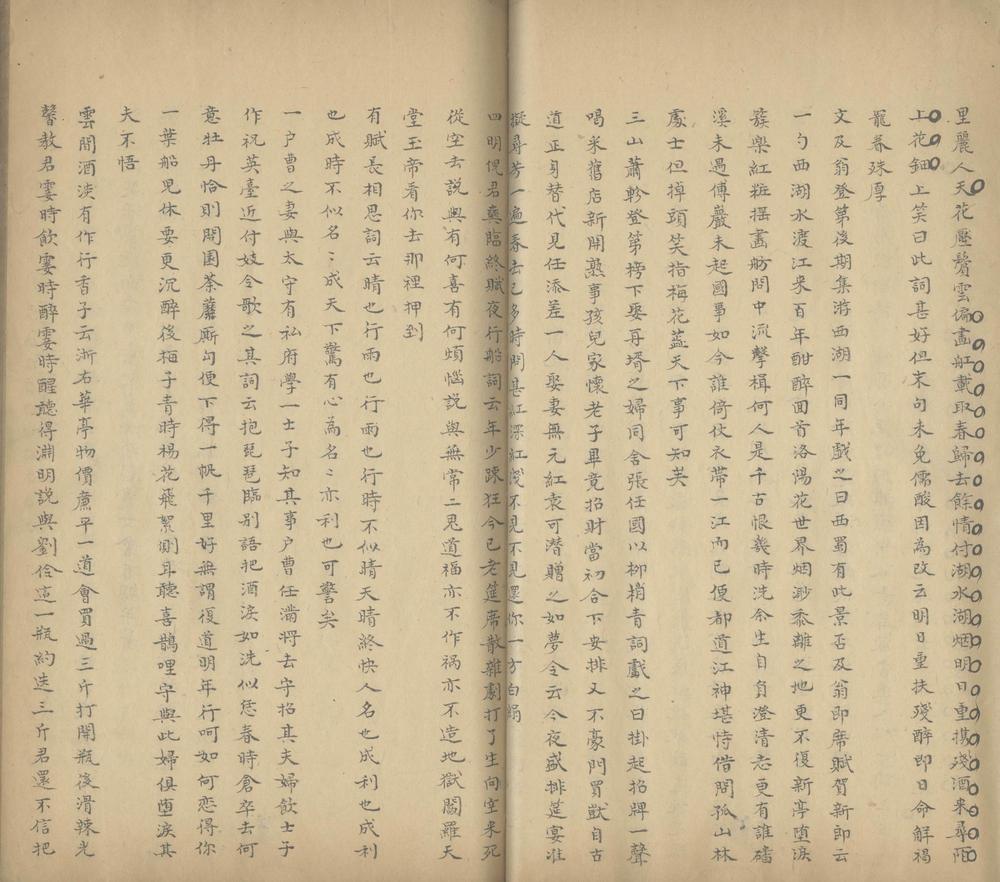 里麗人天花壓鬢雲偏畫舡載取春歸去餘情付湖水湖烟明日重携殘酒来尋陌
上花鈿上笑曰此詞甚好但末句未免儒酸因為改云明日重扶殘醉即日命解褐
寵眷殊厚
文及翁登第後期集游西湖一同年戲之曰西蜀有此景否及翁即席賦賀新郎云
一勺西湖水渡江来百年酣醉回首洛陽花世界烟渺黍離之地更不復新亭堕淚
簇樂紅粧揺畫舫問中流擊楫何人是千古恨幾時洗余生自負澄清志更有誰磻
溪未遇傅巖未起國事如今誰倚仗衣帶一江而已便都道江神堪恃借問孤山林
處士但掉頭笑指梅花蕋天下事可知矣
三山蕭軫登第榜下娶再婿之婦同舍張任國以柳梢青詞戲之曰掛起招牌一聲
喝采舊店新開熟事孩兒家懷老子畢竟招財當初合下安排又不豪門買獃自古
道正身替代見任添差一人娶妻無元紅袁可潜贈之如夢令云今夜盛排筵宴准
擬尋芳一遍春去已多時問甚紅深紅淺不見不見還你一方白絹
四明倪君奭臨終賦夜行船詞云年少踈狂今已老筵席散雜劇打了生向空来死
從空去説與有何喜有何煩惱説與無常二鬼道福亦不作禍亦不造地獄閻羅天
堂玉帝看你去那裡押到
有賦長相思詞云晴也行雨也行雨也行時不似晴天晴終快人名也成利也成利
也成時不似名〻成天下驚有心為名〻亦利也可警矣
一户曹之妻與太守有私府學一士子知其事户曹任滿将去守招其夫婦飲士子
作祝英臺近付妓令歌之其詞云抱琵琶臨别語把酒淚如洗似恁春時倉卒去何
意牡丹恰則開園荼䕷厮勾便下得一帆千里好無謂復道明年行呵如何恋得你
一葉船兒休要更沉醉後梅子青時楊花飛絮側耳聽喜鵲哩守與此婦俱堕淚其
夫不悟
雲間酒淡有作行香子云浙右華亭物價廉平一道會買過三斤打開瓶後滑辣光
馨教君霎時飲霎時醉霎時醒聽得淵明説與劉伶這一瓶約迭三斤君還不信把